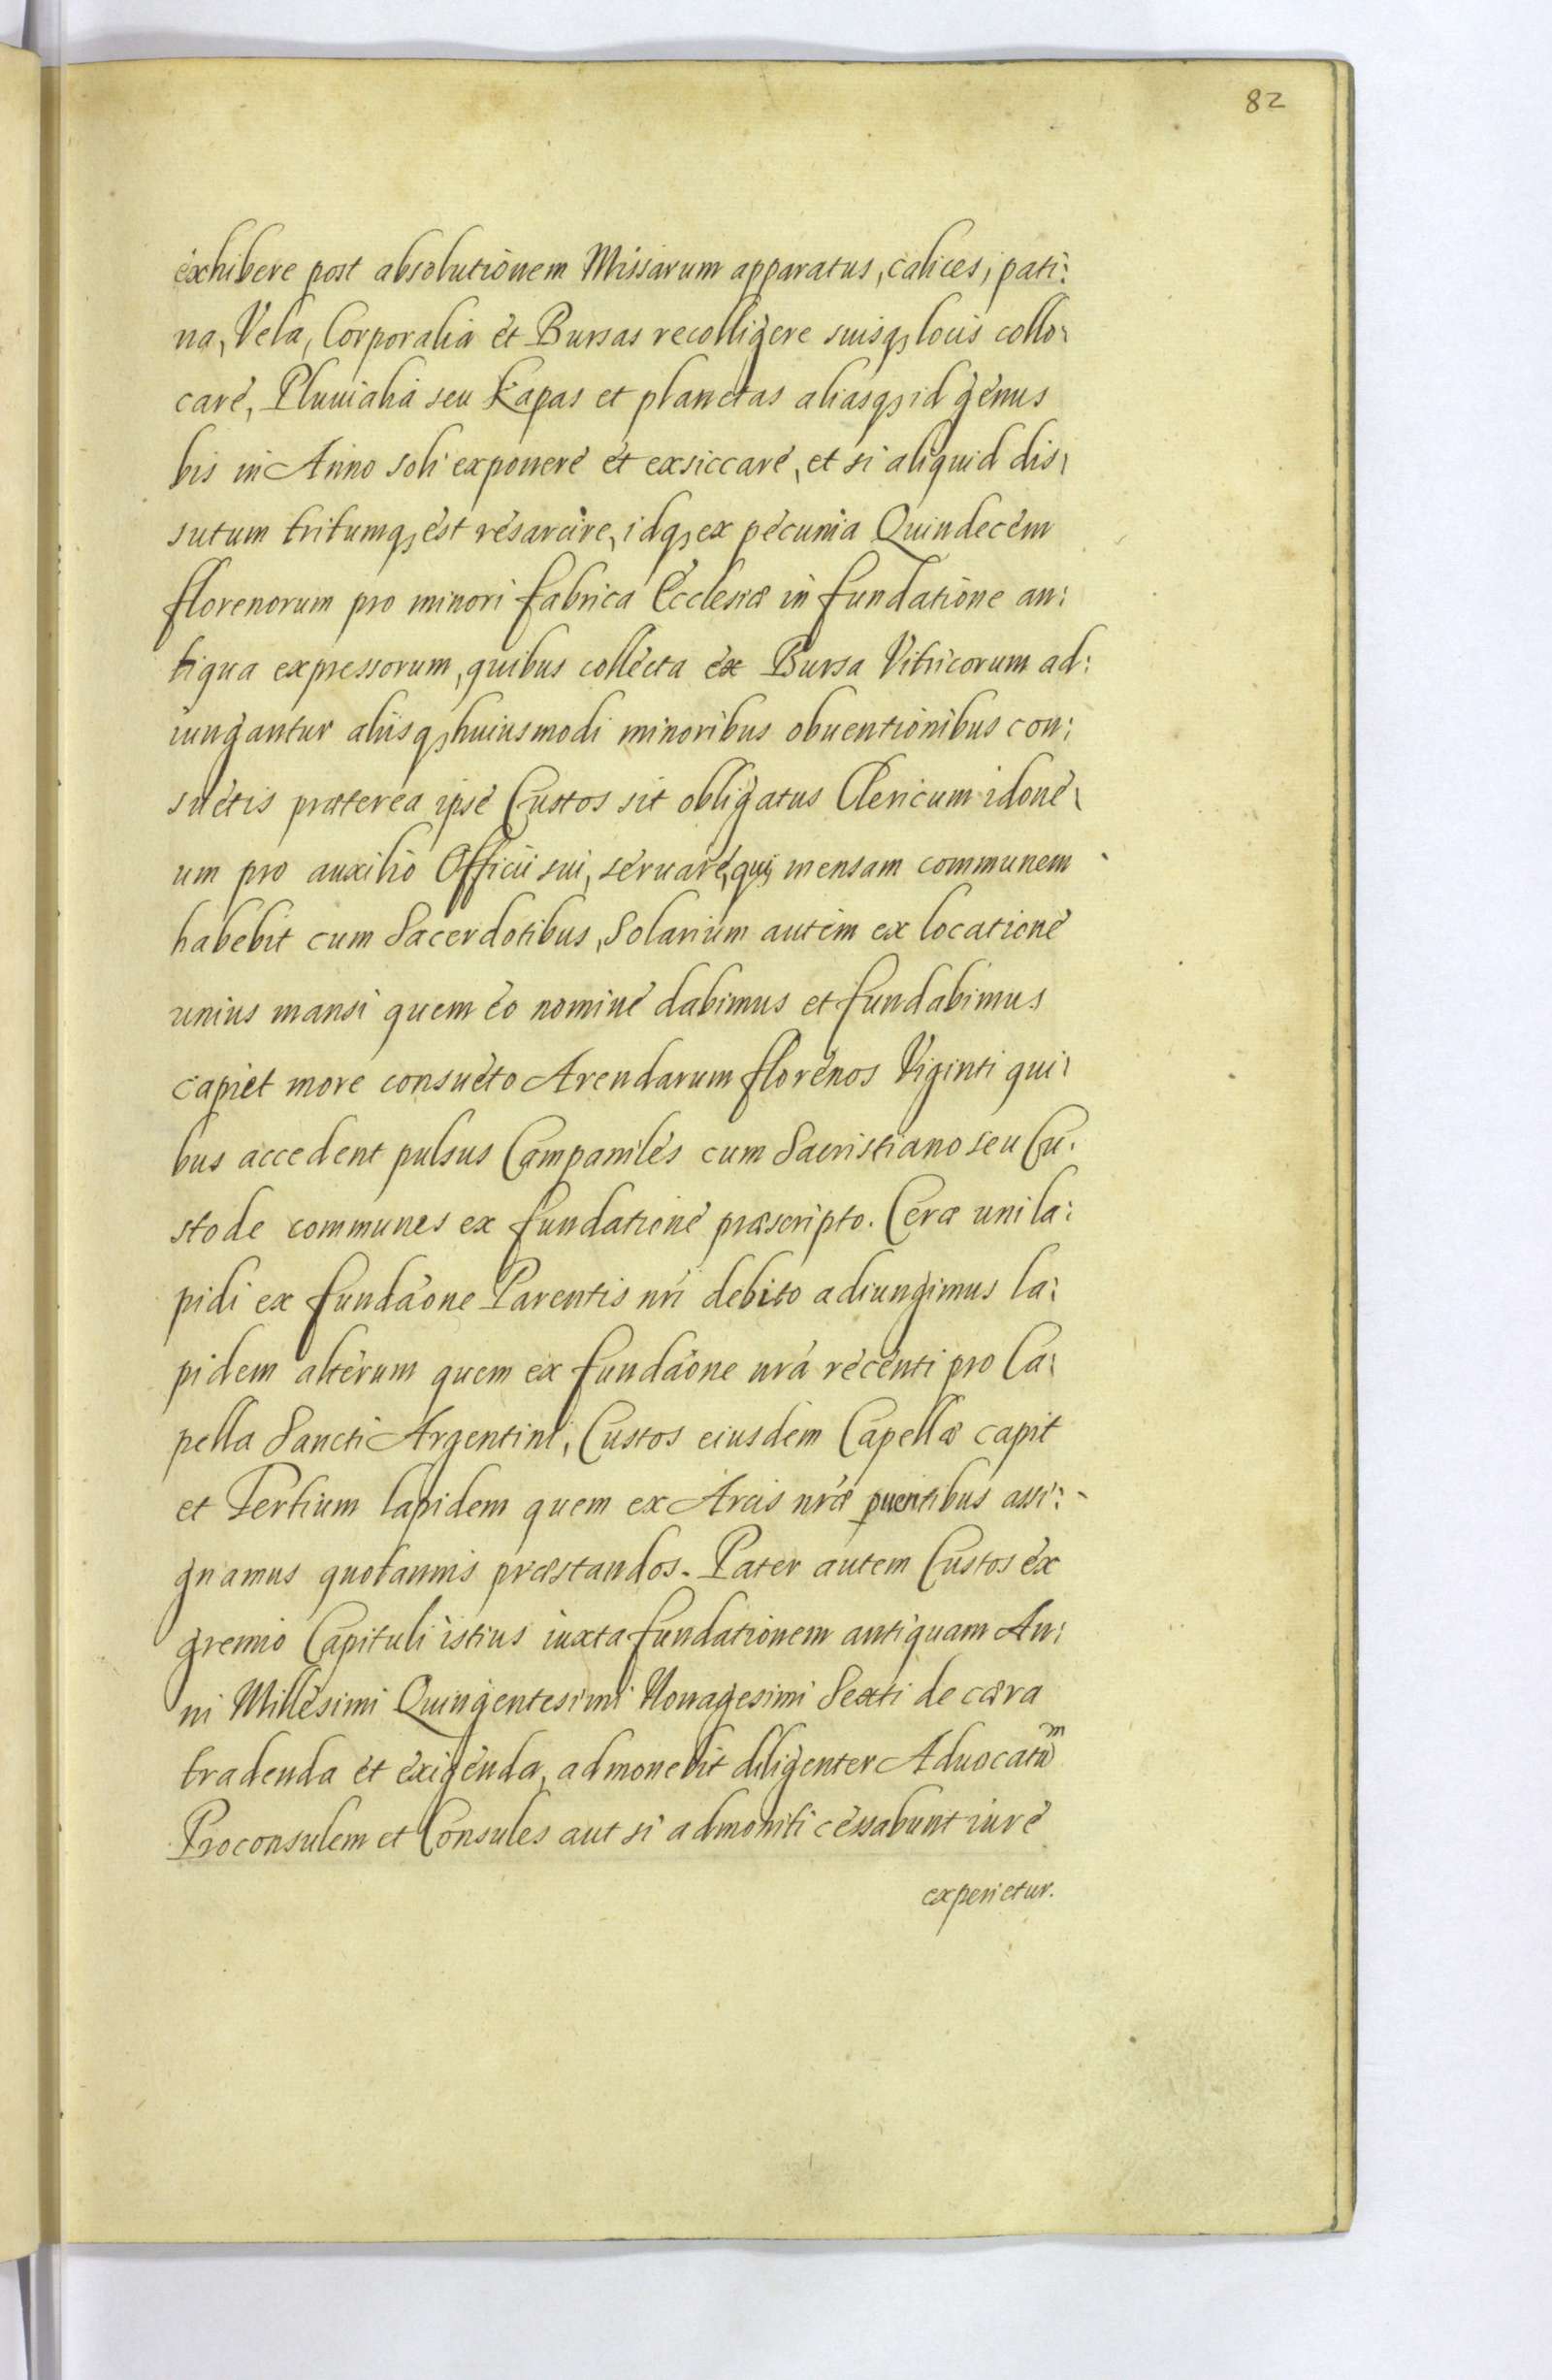 82
exhibere post absolutionem Missarum apparatus, calices, pati:
na, Vela, Corporalia et Bursas recolligere suisq; locis collo:
care, Pluuialia seu Kapas et planetas aliasq; id genus
bis in Anno soli exponere et exsiccare, et si aliquid dis:
sutum tritumq; est resarcire, idq; ex pecunia Quindecem
florenorum pro minori fabrica Ecclesiæ in fundatione an:
tiqua expressorum, quibus collecta ex Bursa Vitricorum ad:
iungantur aliisq; huiusmodi minoribus obuentionibus con:
suetis præterea ipse Custos sit obligatus Clericum idone:
um pro auxilio Officii sui, seruare, qui mensam communem
habebit cum Sacerdotibus, Solarium autem ex locatione
unius mansi quem eo nomine dabimus et fundabimus
capiet more consueto Arendarum florenos Viginti qui:
bus accedent pulsus Campaniles cum Sacristiano seu Cu:
stode communes ex fundatione præscripto. Ceræ uni la:
pidi ex fundaõne Parentis nri debito adiungimus la:
pidem alterum quem ex fundaõne nra recenti pro Ca:
pella Sancti Argentini, Custos eiusdem Capellæ capit
et Tertium lapidem quem ex Arcis nræ puentibus assi:
gnamus quotannis præstandos. Pater autem Custos ex
gremio Capituli istius iuxta fundationem antiquam An:
ni Millesimi Quingentesimi Nonagesimi Sexti de cæra
tradenda et exigenda, admonebit diligenter Aduocatũᵐ
Proconsulem et Consules aut si admoniti cessabunt iure
experietur.